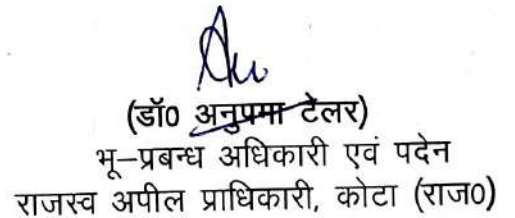 (डॉ0 अनुपमा टेलर)
भू–प्रबन्ध अधिकारी एवं पदेन
राजस्व अपील प्राधिकारी, कोटा (राज0)